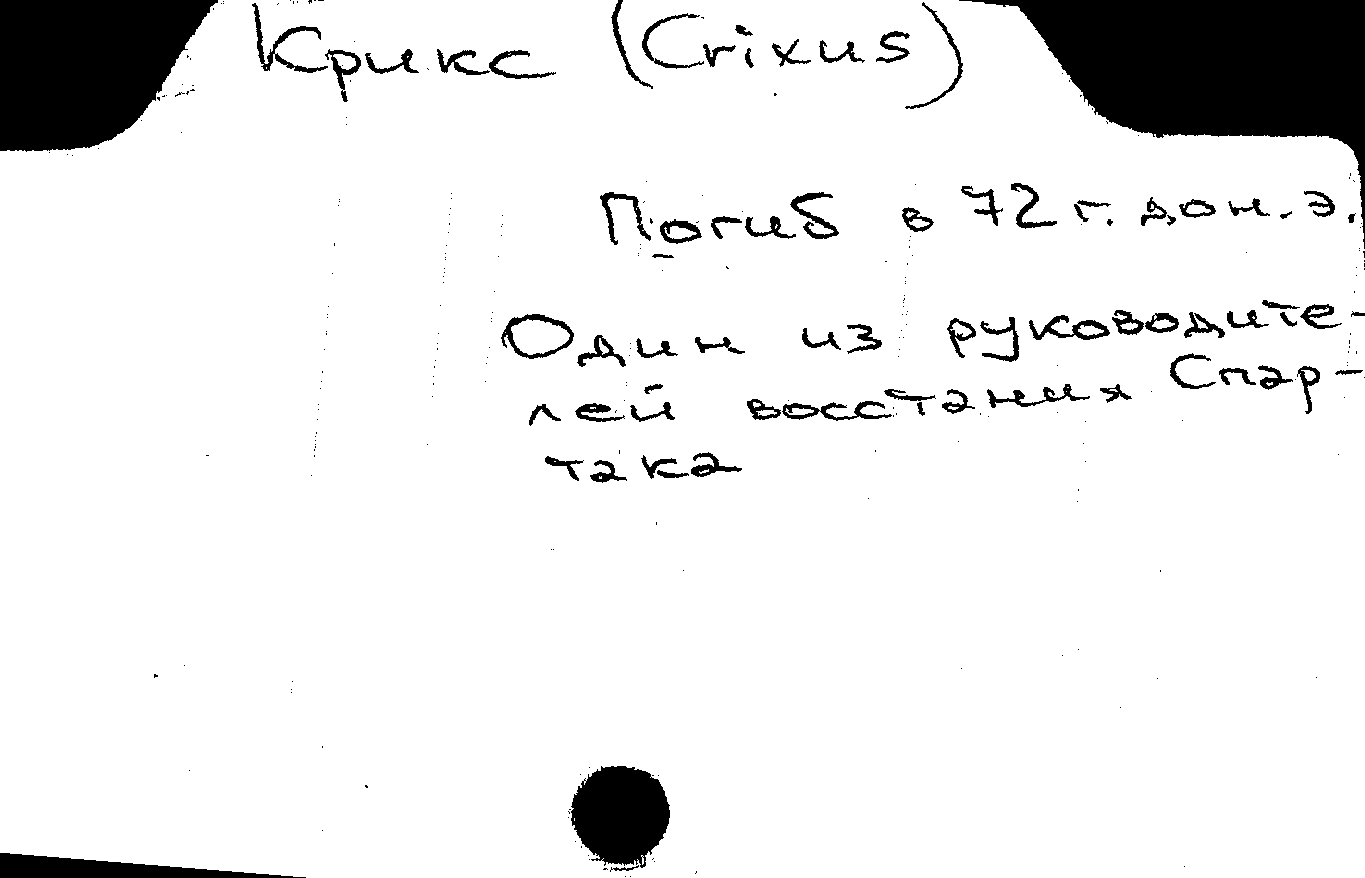 Крикс (Crixus)
Погиб в 72 г. до н. э.
Один из руководите-
лей восстания Спар-
така